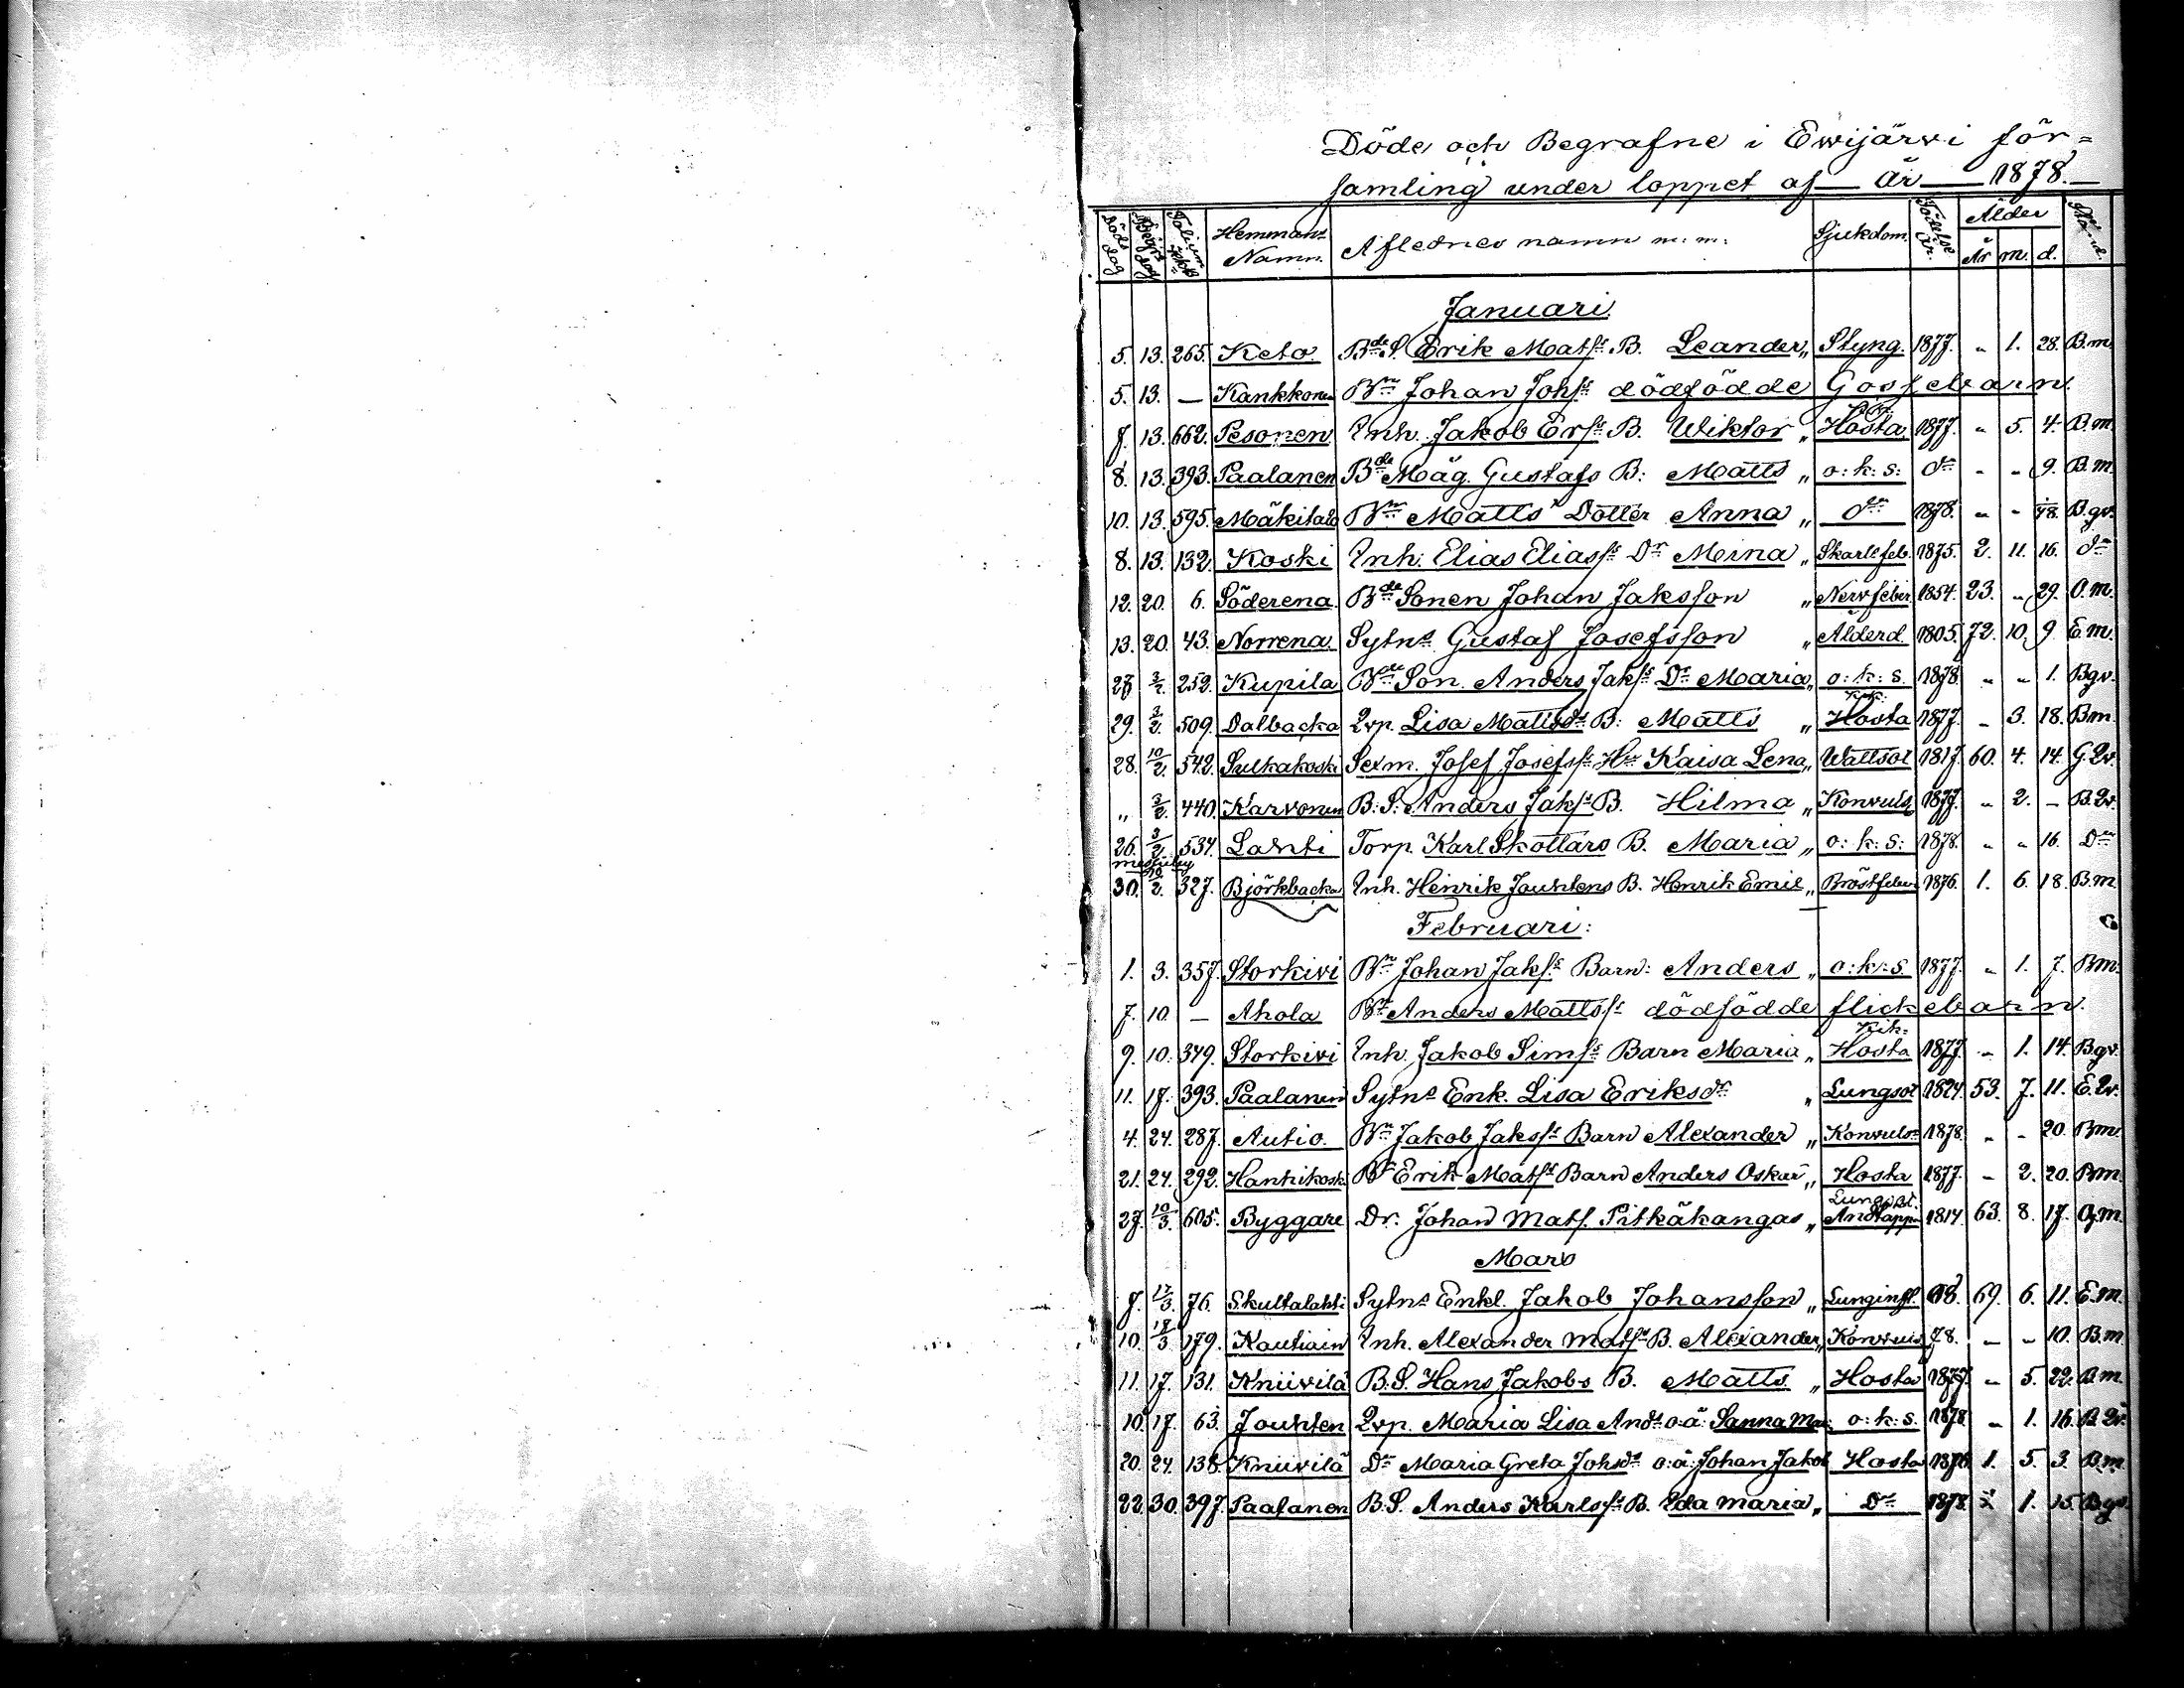 Döde och Begrafne i Ewijärvi för=
samling under loppet af — År — 1878. —
Döds dag Begr. dag Hemmans Namn. Aflednes namn m. m. Sjukdom. Födelse År. Ålder År m. d. Stånd.
Januari.
5. 13. 265. Keto. Bde S. Erik Matss B. Leander „ Styng. 1877. „ 1. 28. B.m.
5. 13. — Kankkonen Bn Johan Johss dödfödde Gossebarn.
7. 13. 662. Pesonen Inh. Jakob Erss B. Wiktor „ Kik: Hosta 1877. „ 5. 4. B.m.
8. 13. 393. Paalanen Bde Måg. Gustafs B: Matts „ o: k: s: do „ „ 9. B.m.
10. 13. 595. Mäkitalo Bn Matts Dotter Anna „ do 1878. „ „ B.qv.
8. 13. 132. Koski Inh. Elias Eliass Dr Meina „ Skarl.feb. 1875. 2. 11. 16. do
12. 20. 6. Söderena. Bde Sonen Johan Jaksson „ Nervfeber 1854. 23. „ 29. O.m.
13. 20. 43. Norrena. Sytns Gustaf Josefsson „ Ålderd. 1805. 72. 10. 9. E.m.
28. 3/2. 252. Kupila Bde Son. Anders Jakss Dr Maria „ o: k: s. 1878. „ „ 1. Bqv.
29. 3/2. 509. Dalbacka Qvp. Lisa Mattsdr B: Matts „ Kik: Hosta 1877. „ 3. 18. Bm.
28. 10/2. 542. Sulkakoski Sexm. Josef Josefss Hu Kaisa Lena „ Wattsot 1817. 60. 4. 14. G.Qv.
„ 3/2. 440. Karvonen B. S. Anders Jakss B. Hilma „ Konvuls. 1877. „ 2. — B.Qv.
26. 3/2. 534. Lahti Torp. Karl Skottars B. Maria „ o: k: s: 1878. „ „ 16. Do
30. 10/2. 327. Björkbacka Inh. Henrik Jouhtens B. Henrik Emil „ Bröstfeber 1876. 1. 6. 18. B.m.
Februari:
1. 3. 357. Storkivi Bn Johan Jakss Barn: Anders „ o: k: s. 1877. „ 1. 7. Bm.
7. 10. — Ahola Bn Anders Mattss dödfödde flickebarn.
9. 10. 349. Storkivi Inh. Jakob Simss Barn Maria „ Kik= Hosta 1877. „ 1. 14. Bqv.
11. 17. 393. Paalanen Sytns Enk. Lisa Eriksdr „ Lungsot 1824. 53. 7. 11. E.Qv.
4. 24. 287. Autio. Bn Jakob Jakss Barn Alexander „ Konvuls. 1878. „ „ 20. Bm.
21. 24. 292. Hanhikoski Bn Erik Matss Barn Anders Oskar „ Hosta 1877. „ 2. 20. Bm.
27. 10/3. 605. Byggare Dr. Johan Mats. Pitkäkangas „ Lungsot. Andtäppa 1814. 63. 8. 17. G.m.
Mars
7. 17/3. 76. Skultalahti Sytns Enkl. Jakob Johansson „ Lunginfl. 69. 6. 11. E.m.
10. 18/3. 179. Kautiain Inh. Alexander Matss B. Alexander „ Konvuls. 78. „ „ 10. B.m.
11. 17. 131. Kniivilä B. S. Hans Jakobs B. Matts. „ Hosta 1877. „ 5. 22. B.m.
10. 17. 63. Jouhten Qvp. Maria Lisa Andd o: ä: Sanna Mar. o: k: s. 1878. „ 1. 16. B.Qv.
20. 24. 138. Kniivilä Dr Maria Greta Johsdr o: ä: Johan Jakob Hosta 1876. 1. 5. 3. B.m.
22. 30. 397. Paalanen B. S. Anders Karlss B. Ida Maria „ Do 1878. 1. 15. Bqv.